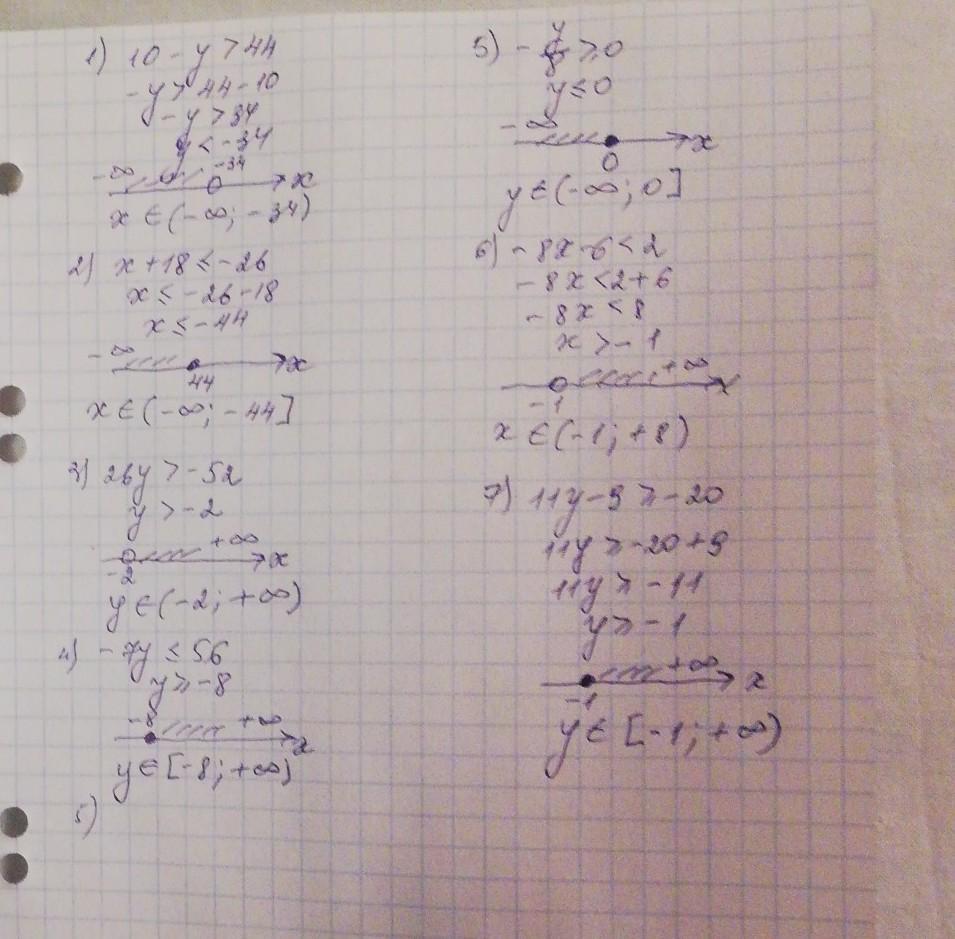 1) 10 - y > 44
-y > 44-10
-y > 34
y < -34
-∞ -34 x
x ∈ (-∞; -34)
2) x+18 ≤ -26
x ≤ -26-18
x ≤ -44
-∞ 44 x
x ∈ (-∞; -44]
3) 26y > -52
y > -2
+∞ x
-2
y ∈ (-2; +∞)
4) -7y ≤ 56
y ≥ -8
-8 +∞ x
y ∈ [-8; +∞)
5)
5) - y/8 ≥ 0
y ≤ 0
-∞ x
0
y ∈ (-∞; 0]
6) -8x-6 < 2
-8x < 2+6
-8x < 8
x > -1
+∞ x
-1
x ∈ (-1; +8)
7) 11y-9 ≥ -20
11y ≥ -20+9
11y ≥ -11
y ≥ -1
+∞ x
-1
y ∈ [-1; +∞)